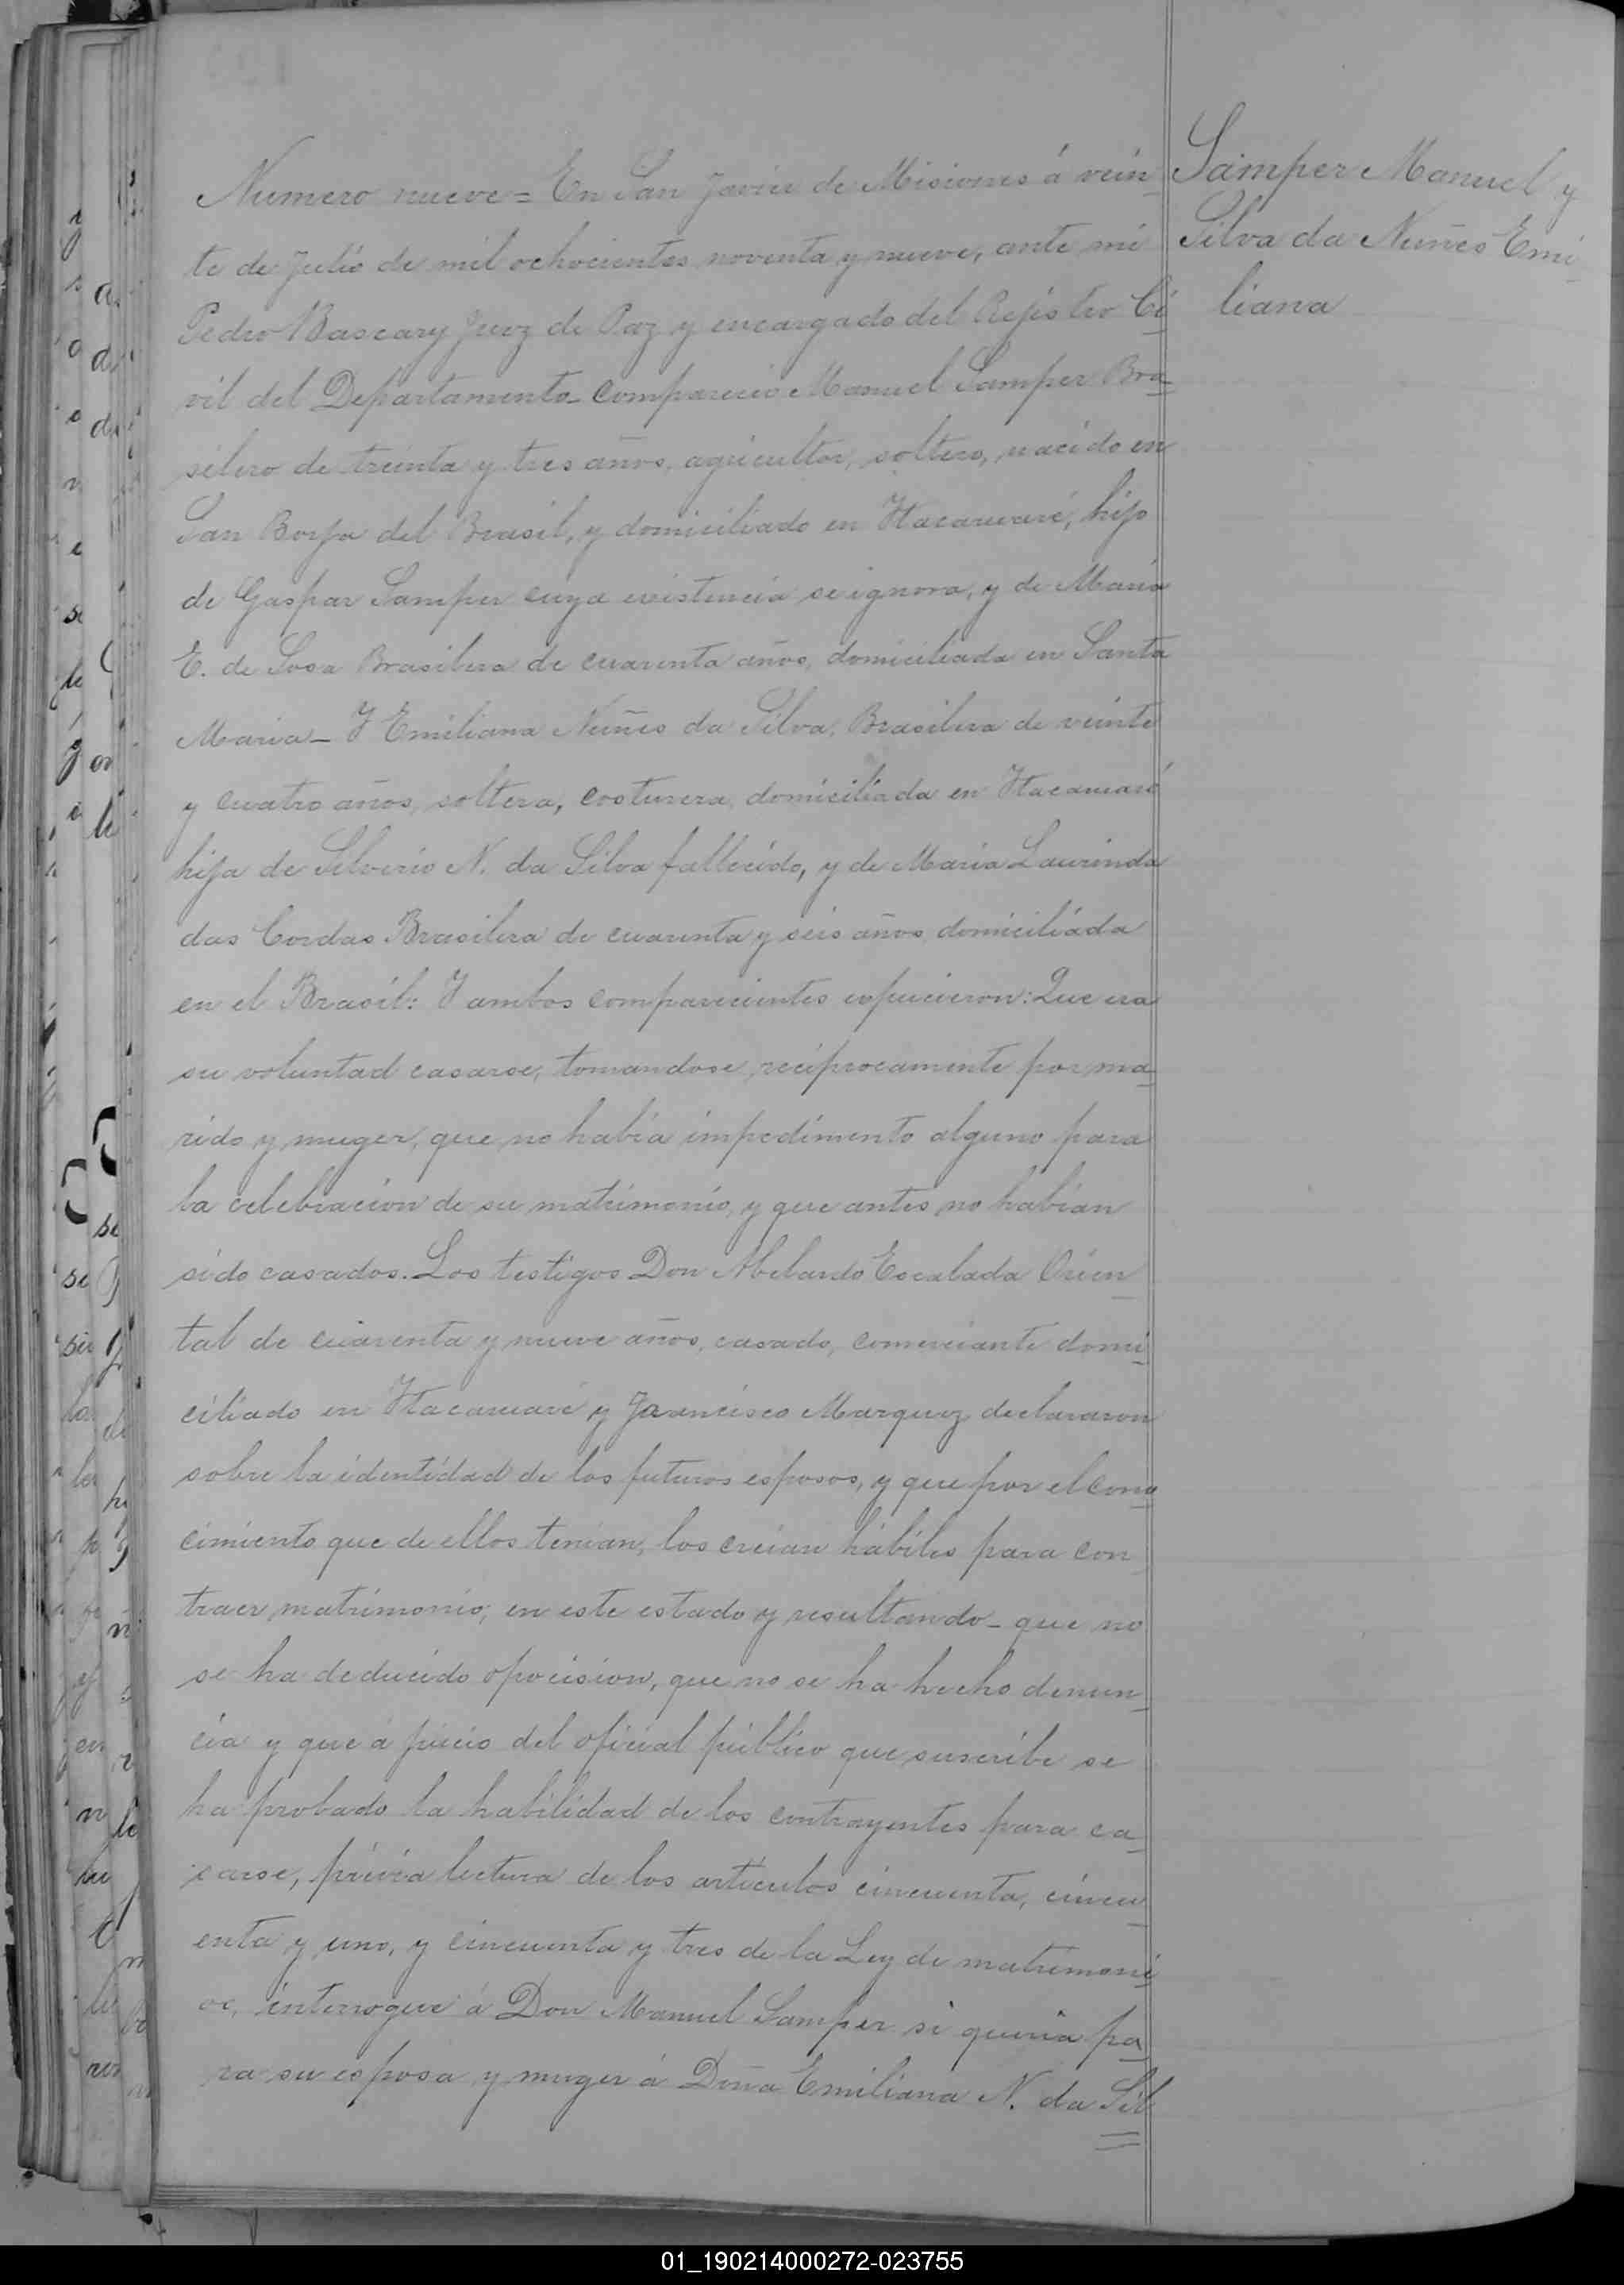 Numero nueve = En San Javier de Misiones á vein
te de Julio de mil ochocientos noventa y nueve, ante mi
Pedro Bascary Juez de Paz y encargado del Rejistro Ci
vil del Departamento_ comparecio Manuel Samper Bra
silero de treinta y tres años, agricultor, soltero, nacido en
San Borja del Brasil, y domiciliado en Itacaruaré, hijo
de Gaspar Samper cuya existencia se ignora, y de Maria
E. de Sosa Brasilera de cuarenta años, domiciliada en Santa
Maria_ I Emiliana Nuñes da Silva, Brasilera de veinte
y cuatro años, soltera, costurera, domiciliada en Itacaruaré
hija de Silverio N. da Silva fallecido, y de Maria Laurinda
das Cordas Brasilera de cuarenta y seis años domiciliada
en el Brasil: I ambos comparecientes espucieron: Que era
su voluntad casarse, tomandose, reciprocamente por ma
rido y muger, que no habia impedimento alguno para
la celebracion de su matrimonio, y que antes no habian
sido casados. Los testigos Don Abelardo Escalada Orien
tal de cuarenta y nueve años, casado, comerciante domi
ciliado en Itacaruaré y Francisco Marquez declararon
sobre la identidad de los futuros esposos, y que por el cono
cimiento que de ellos tenian, los creian hábiles para con
traer matrimonio, en este estado y resultando_ que no
se ha deducido oposicion, que no se ha hecho denun
cia y que á juicio del oficial público que suscribe se
ha probado la habilidad de los contrayentes para ca
sarse, prévia lectura de los articulos cincuenta, cincu
enta y uno, y cincuenta y tres de la Ley de matrimoni
os, interrogué á Don Manuel Samper si queria pa
ra su esposa y muger á Doña Emiliana N. da Sil
Samper Manuel y
Silva da Nuñes Emi
liana
01_190214000272-023755